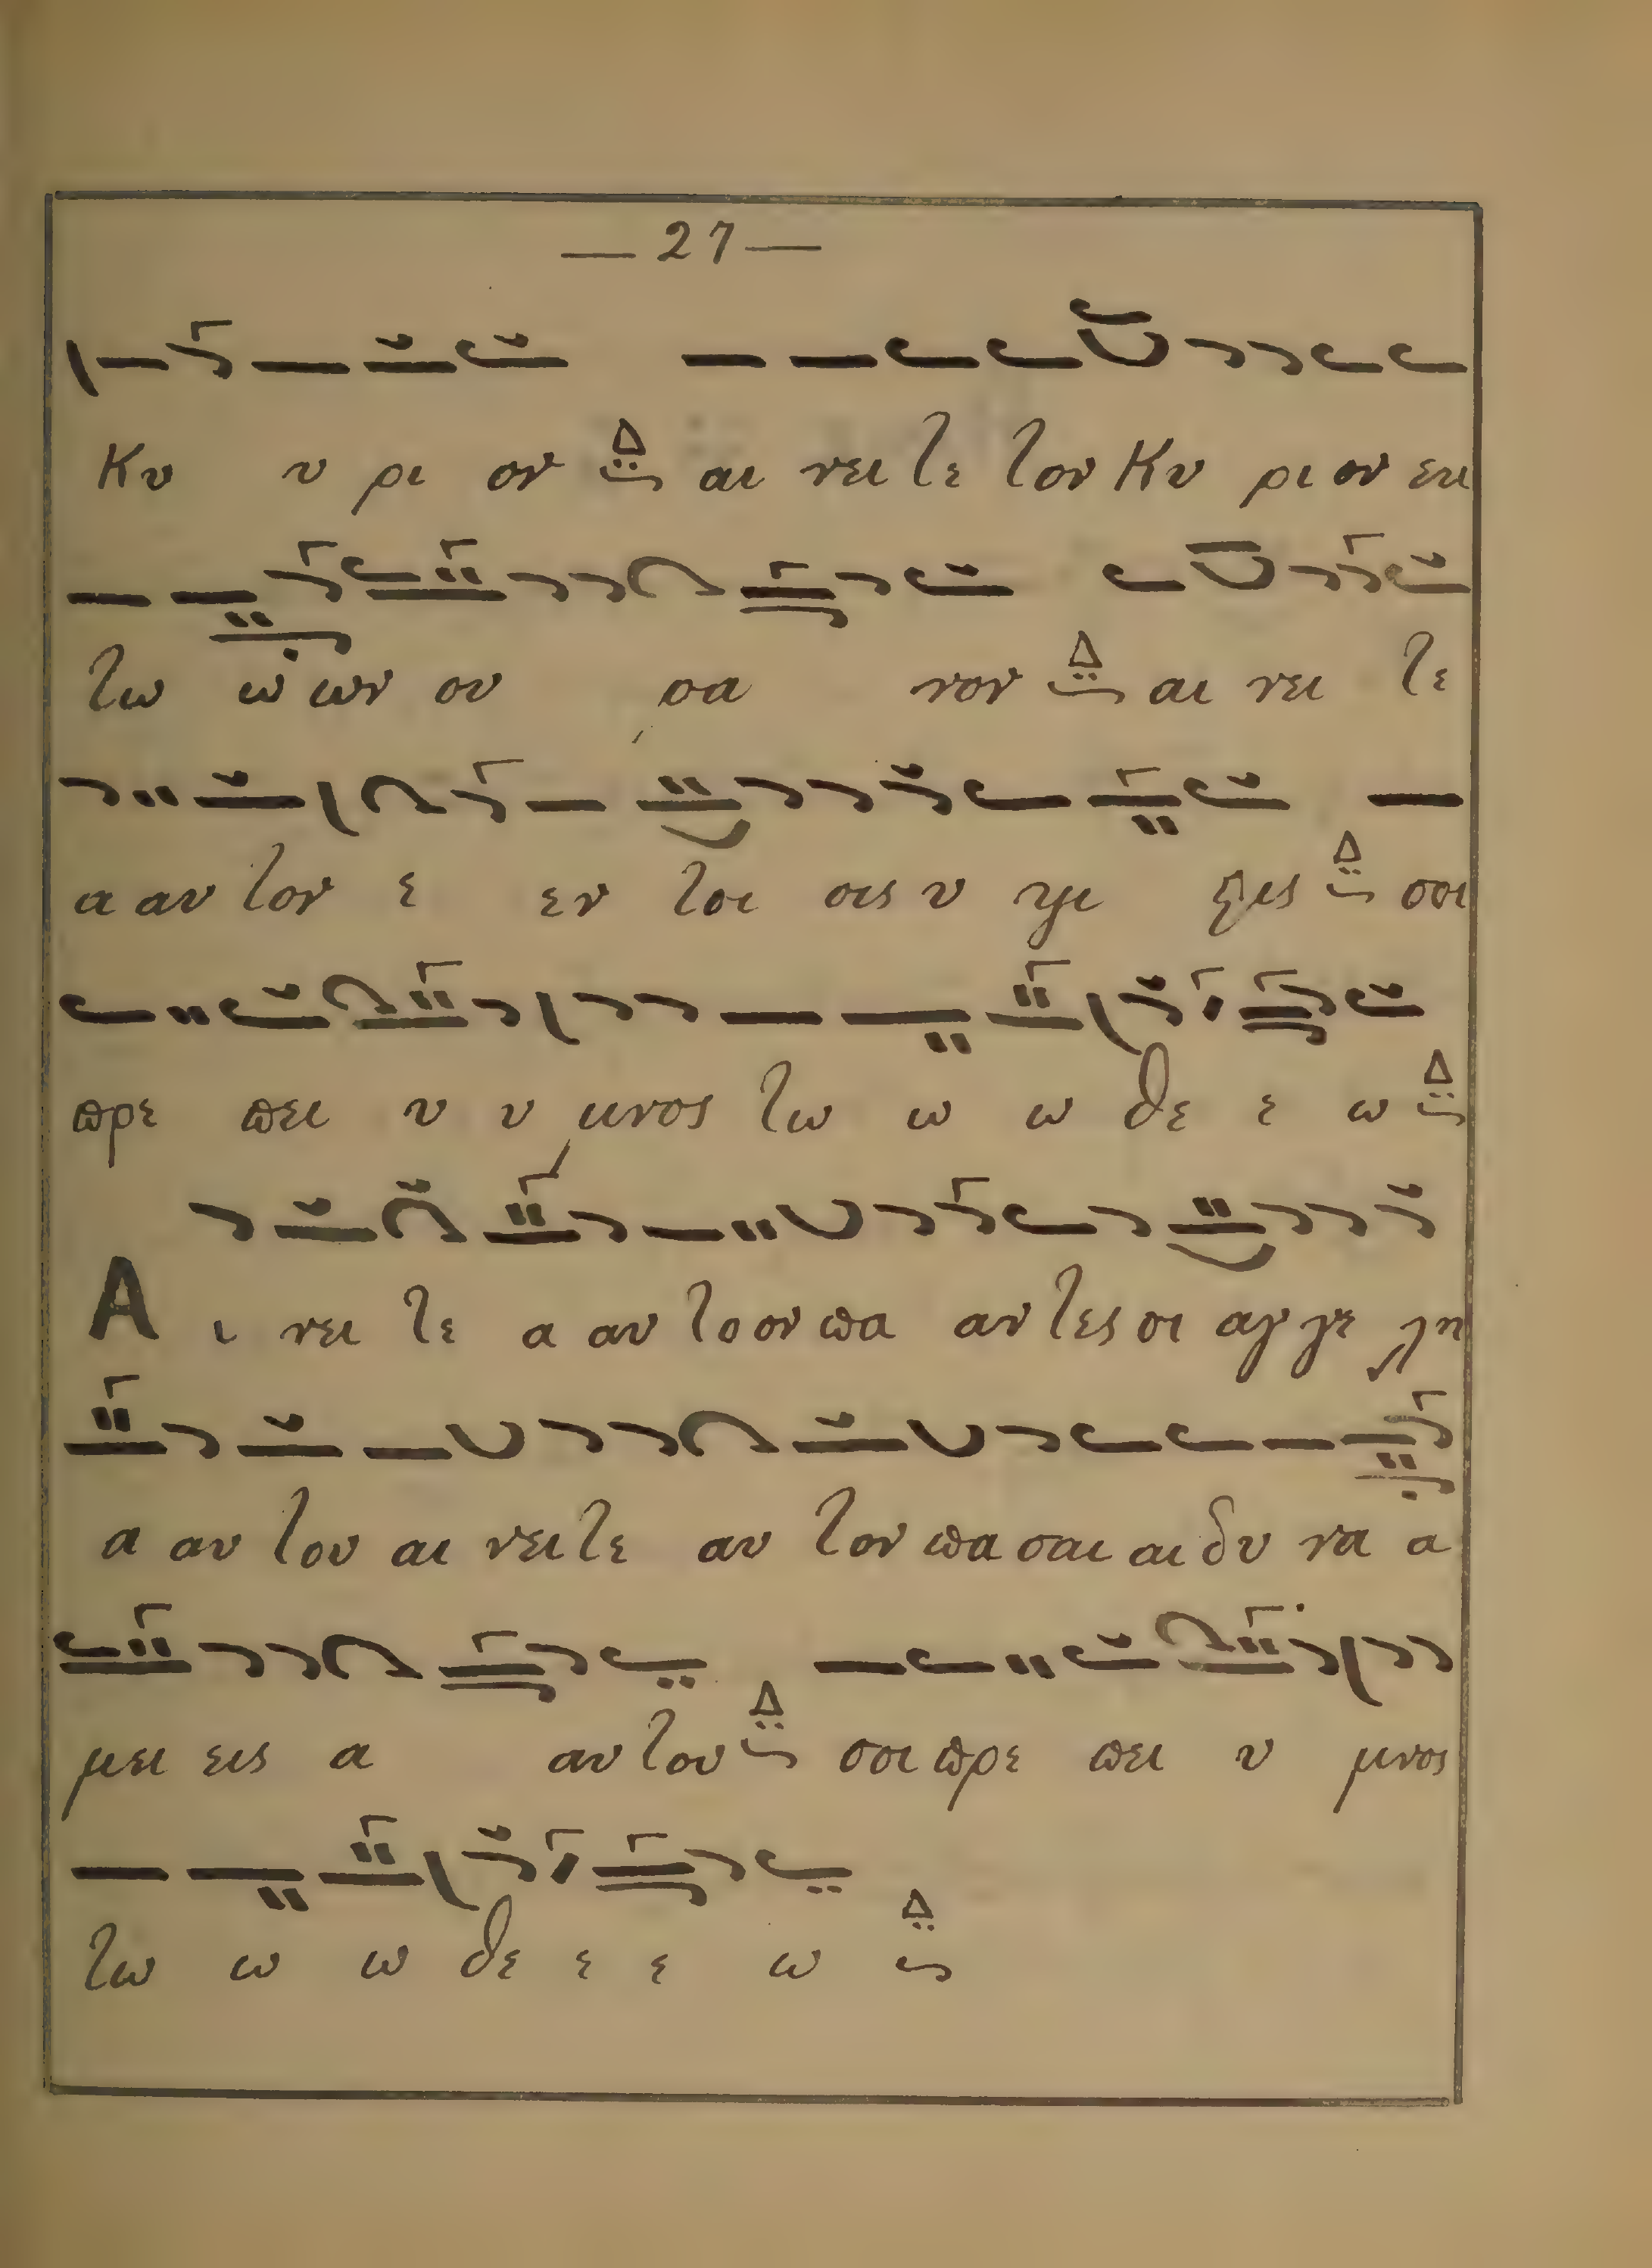 — 27 —
Κυ υ ρι ον Δ αι νει τε τον Κυ ρι ον εκ
τω ω ων ου ρα νον Δ αι νει τε
α αυ τον ε εν τοι οις υ ψι ςις Δ σοι
ϖρε ϖει υ υ μνος τω ω ω θε ε ω Δ
Α ι νει τε α αυ το ον ϖα αν τες οι αγ γε λοι
α αυ του αι νει τε αυ τον ϖα σαι αι δυ να α
μει εις α αυ του Δ σοι ϖρε ϖει υ μνος
τω ω ω θε ε ε ω Δ